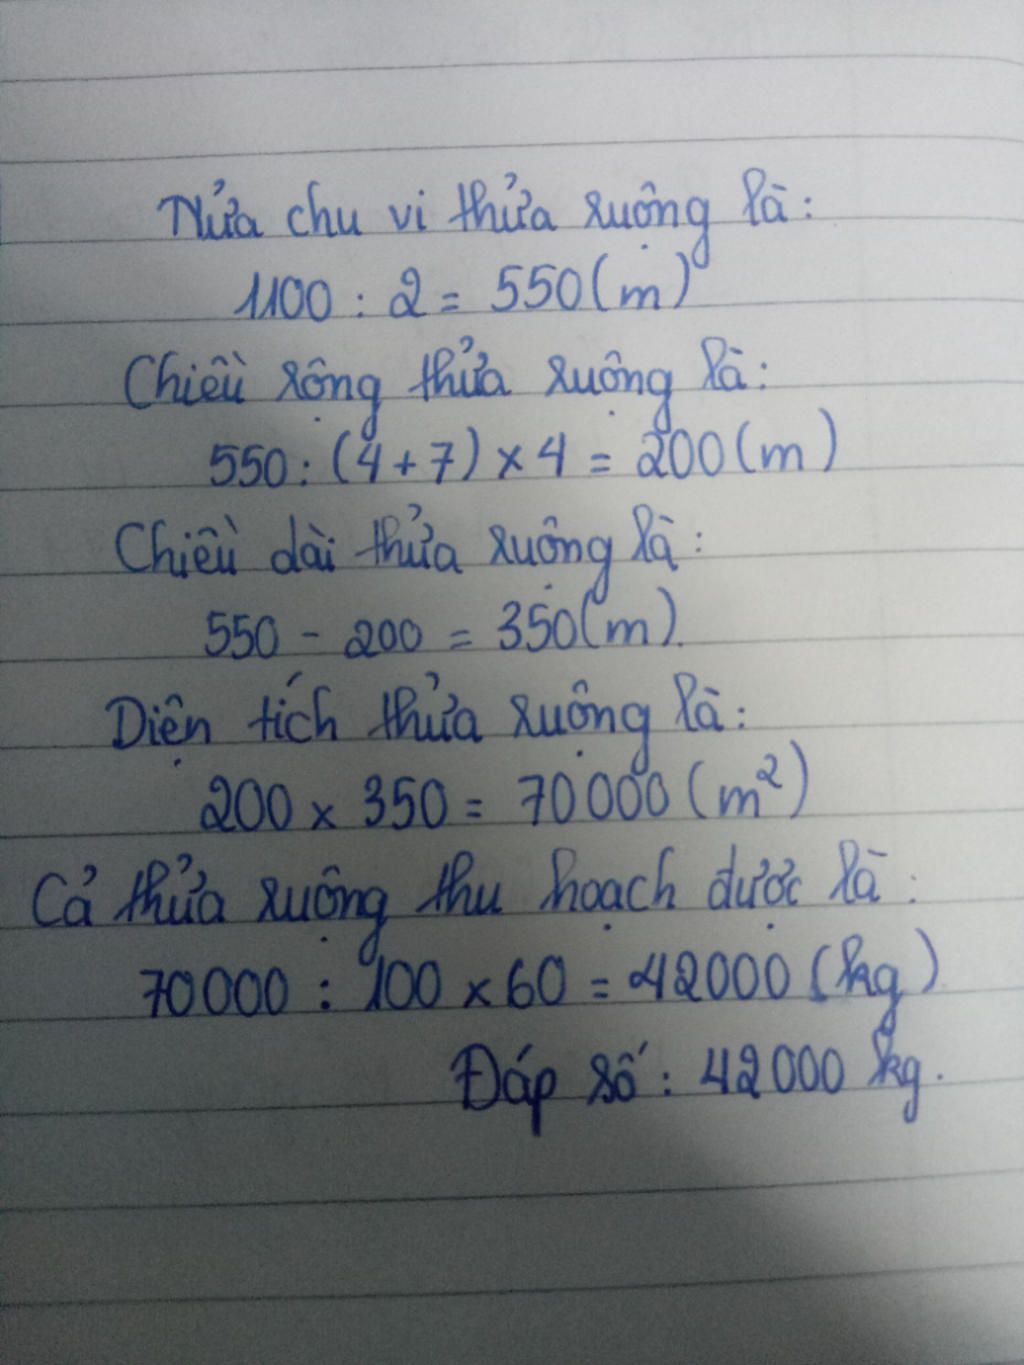 Nửa chu vi thửa ruộng là:
1100 : 2 = 550 (m)
Chiều rộng thửa ruộng là:
550 : (4 + 7) × 4 = 200 (m)
Chiều dài thửa ruộng là:
550 - 200 = 350 (m).
Diện tích thửa ruộng là:
200 × 350 = 70 000 (m²)
Cả thửa ruộng thu hoạch được là:
70 000 : 100 × 60 = 42000 (kg)
Đáp số: 42 000 kg.